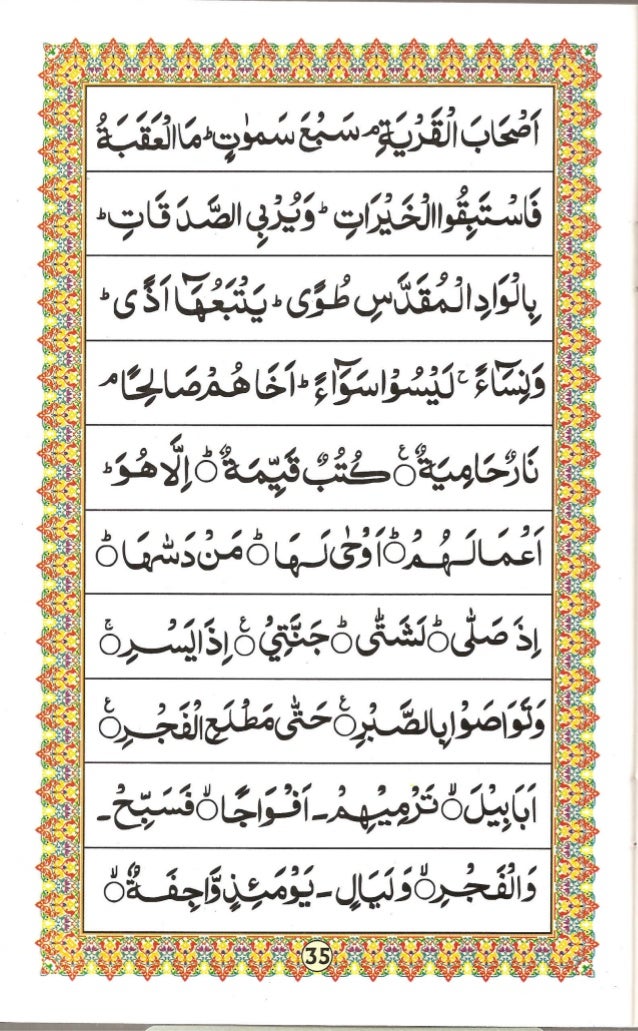 اَصْحَابَ الْقَرْيَةِ ۘ سَبْعَ سَمٰوٰتٍ ؕ مَا الْعَقَبَةُ
فَاسْتَبِقُوا الْخَيْرَاتِ ؕ وَيُرْبِى الصَّدَقَاتِ ؕ
بِالْوَادِ الْمُقَدَّسِ طُوًى ؕ يَتْبَعُهَآ اَذًى ؕ
وَنِسَآءً ۚ لَيْسُوْا سَوَآءً ؕ اَخَاهُمْ صَالِحًا ۘ
نَارٌ حَامِيَةٌ ○ۧ كُتُبٌ قَيِّمَةٌ ○ؕ اِلَّا هُوَ ؕ
اَعْمَالَهُمْ ○ؕ اَوْحٰى لَهَا ○ؕ مَنْ دَسّٰىهَا ○ؕ
اِذَ صَلّٰى ○ؕ لَشَتّٰى ○ؕ جَنَّتِيْ ○ۧ اِذَا يَسْرِ ○ۚ
وَتَوَاصَوْا بِالصَّبْرِ ○ۧ حَتّٰى مَطْلَعِ الْفَجْرِ ○ۧ
اَبَابِيْلَ ○ۙ تَرْمِيْهِمْ ـ اَفْوَاجًا ○ۙ فَسَبِّحْ ـ
وَالْفَجْرِ ○ۙ وَلَيَالٍ ـ يَوْمَئِذٍ وَّاجِفَةٌ ○ۙ
35